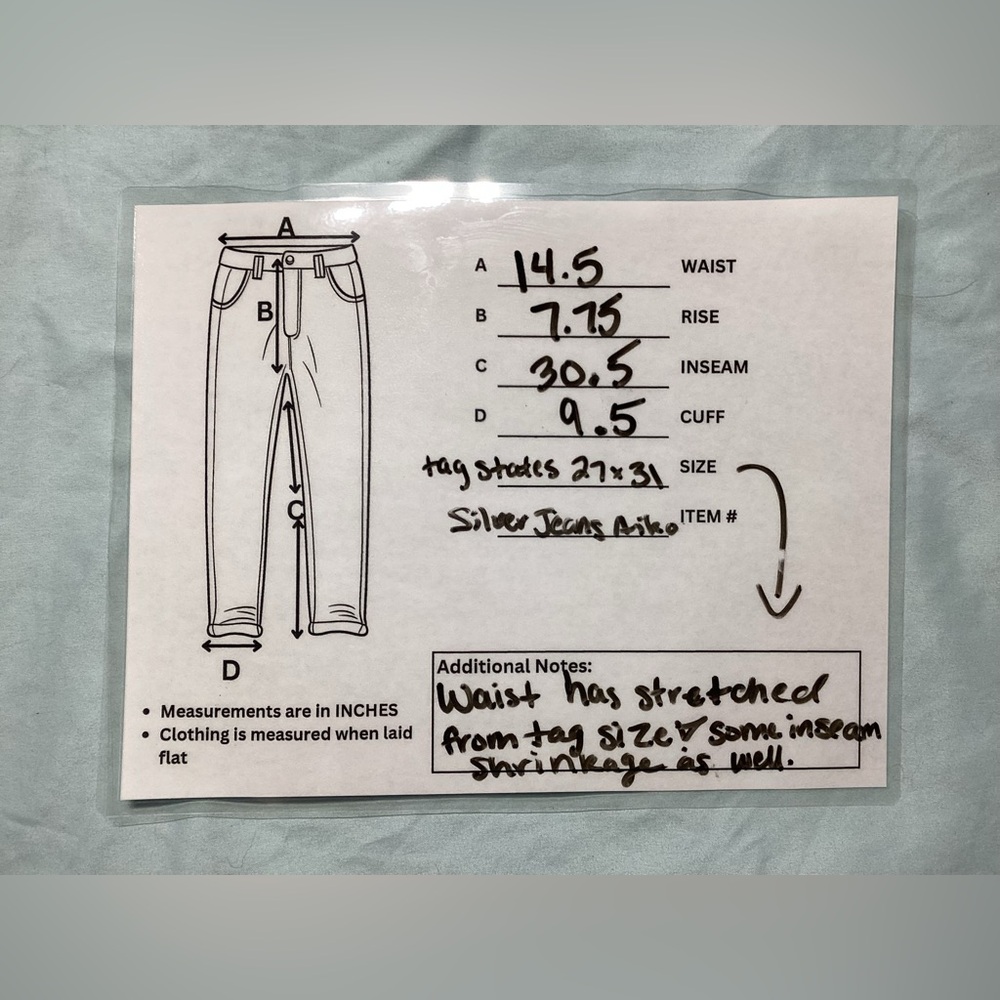 A
B
C
D
A 14.5 WAIST
B 7.75 RISE
C 30.5 INSEAM
D 9.5 CUFF
tag states 27x31 SIZE
Silver Jeans Aiko ITEM #
• Measurements are in INCHES
• Clothing is measured when laid
flat
Additional Notes:
Waist has stretched
from tag size & some inseam
shrinkage as well.